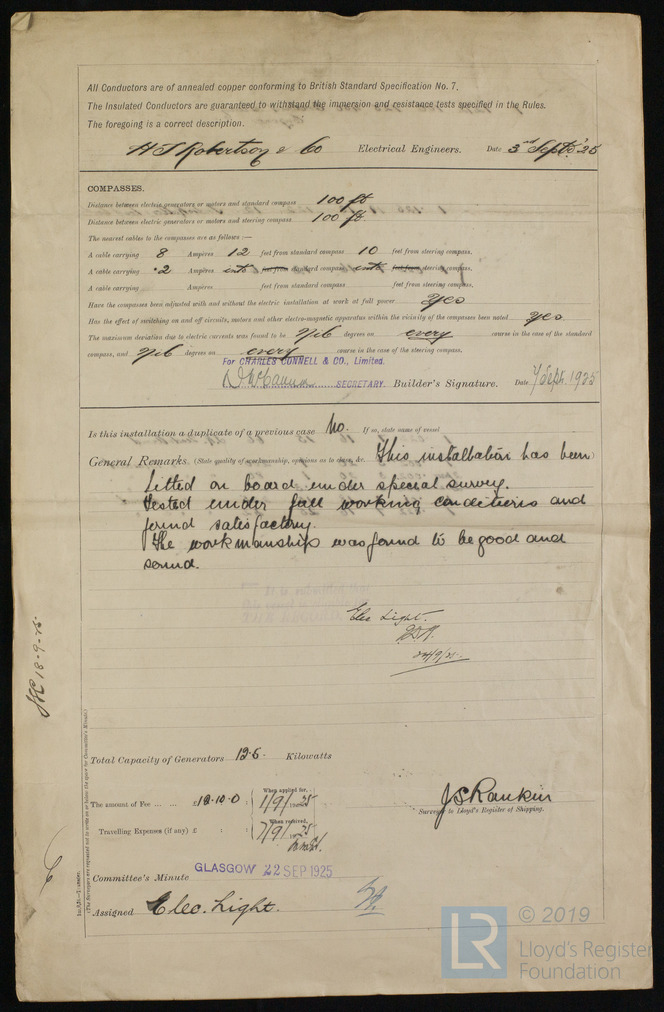 All Conductors are of annealed copper conforming to British Standard Specification No. 7.
The Insulated Conductors are guaranteed to withstand the immersion and resistance tests specified in the Rules.
The foregoing is a correct description.
H J Robertson & Co Electrical Engineers. Date 3rd Sept '25
COMPASSES.
Distance between electric generators or motors and standard compass 100 ft
Distance between electric generators or motors and steering compass 100 ft.
The nearest cables to the compasses are as follows:—
A cable carrying 8 Ampères 12 feet from standard compass 10 feet from steering compass.
A cable carrying .2 Ampères into feet from standard compass into feet from steering compass.
A cable carrying Ampères feet from standard compass feet from steering compass.
Have the compasses been adjusted with and without the electric installation at work at full power Yes
Has the effect of switching on and off circuits, motors and other electro-magnetic apparatus within the vicinity of the compasses been noted Yes
The maximum deviation due to electric currents was found to be Nil degrees on every course in the case of the standard
compass, and Nil degrees on every course in the case of the steering compass.
For CHARLES CONNELL & CO., Limited.
SECRETARY. Builder's Signature. Date 7 Sept. 1925
Is this installation a duplicate of a previous case No. If so, state name of vessel
General Remarks. (State quality of workmanship, opinions as to class, &c. This installation has been
fitted on board under special survey.
Tested under full working conditions and
found satisfactory.
The workmanship was found to be good and
sound.
Elec Light.
Total Capacity of Generators 12.6. Kilowatts
The amount of Fee ... ... £12.10.0 When applied for, 1/9/1925
Travelling Expenses (if any) £ : : When received, 7/9/1925
J S Rankin
Surveyor to Lloyd's Register of Shipping.
Committee's Minute GLASGOW 22 SEP 1925
Assigned Elec. Light.
(The Surveyors are requested not to write on or below the space for Committee's Minute.)
LR © 2019
Lloyd's Register
Foundation